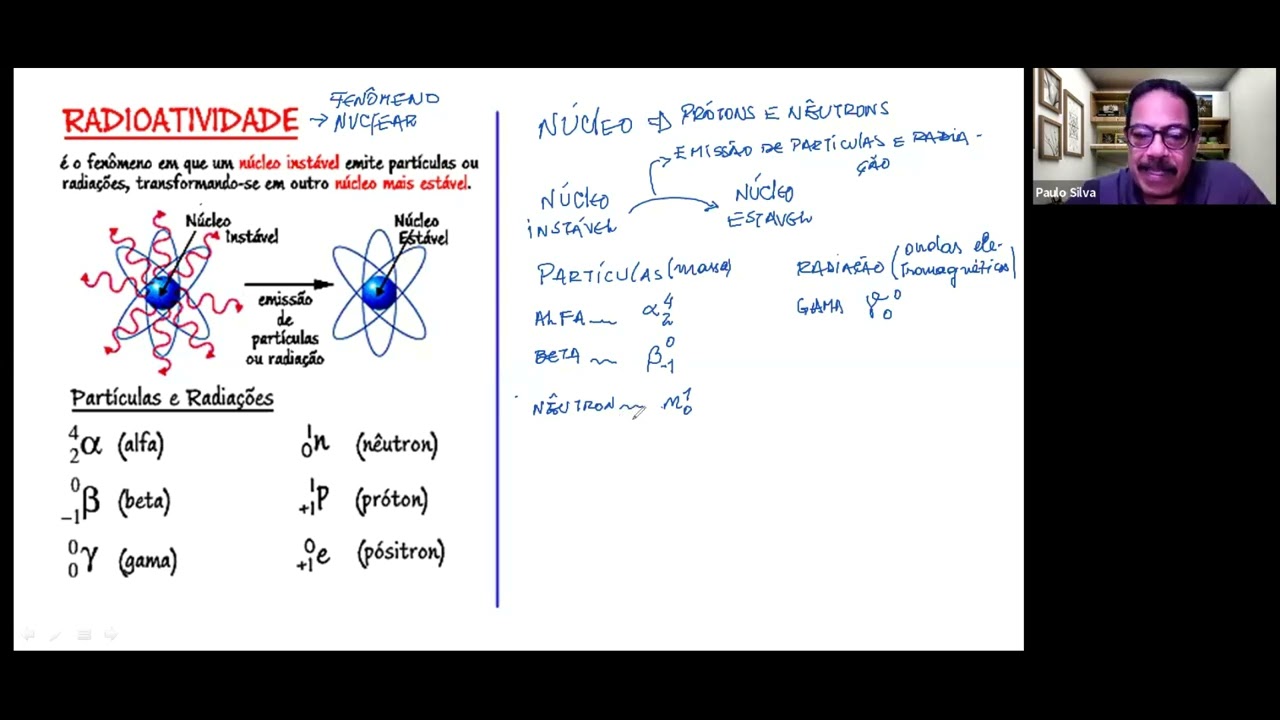 RADIOATIVIDADE → FENÔMENO
NUCLEAR
é o fenômeno em que um núcleo instável emite partículas ou
radiações, transformando-se em outro núcleo mais estável.
Núcleo
Instável
Núcleo
Estável
emissão
de
partículas
ou radiação
Partículas e Radiações
4 2 α (alfa)
1 0 n (nêutron)
0 -1 β (beta)
1 +1 P (próton)
0 0 γ (gama)
0 +1 e (pósitron)
NÚCLEO ⇒ PRÓTONS E NÊUTRONS
EMISSÃO DE PARTÍCULAS E RADIA-
ÇÃO
NÚCLEO
INSTÁVEL
NÚCLEO
ESTÁVEL
PARTÍCULAS (massa)
RADIAÇÃO (ondas ele-
tromagnéticas)
ALFA α 4 2
GAMA γ 0 0
BETA β 0 -1
NÊUTRON n 1 0
Paulo Silva